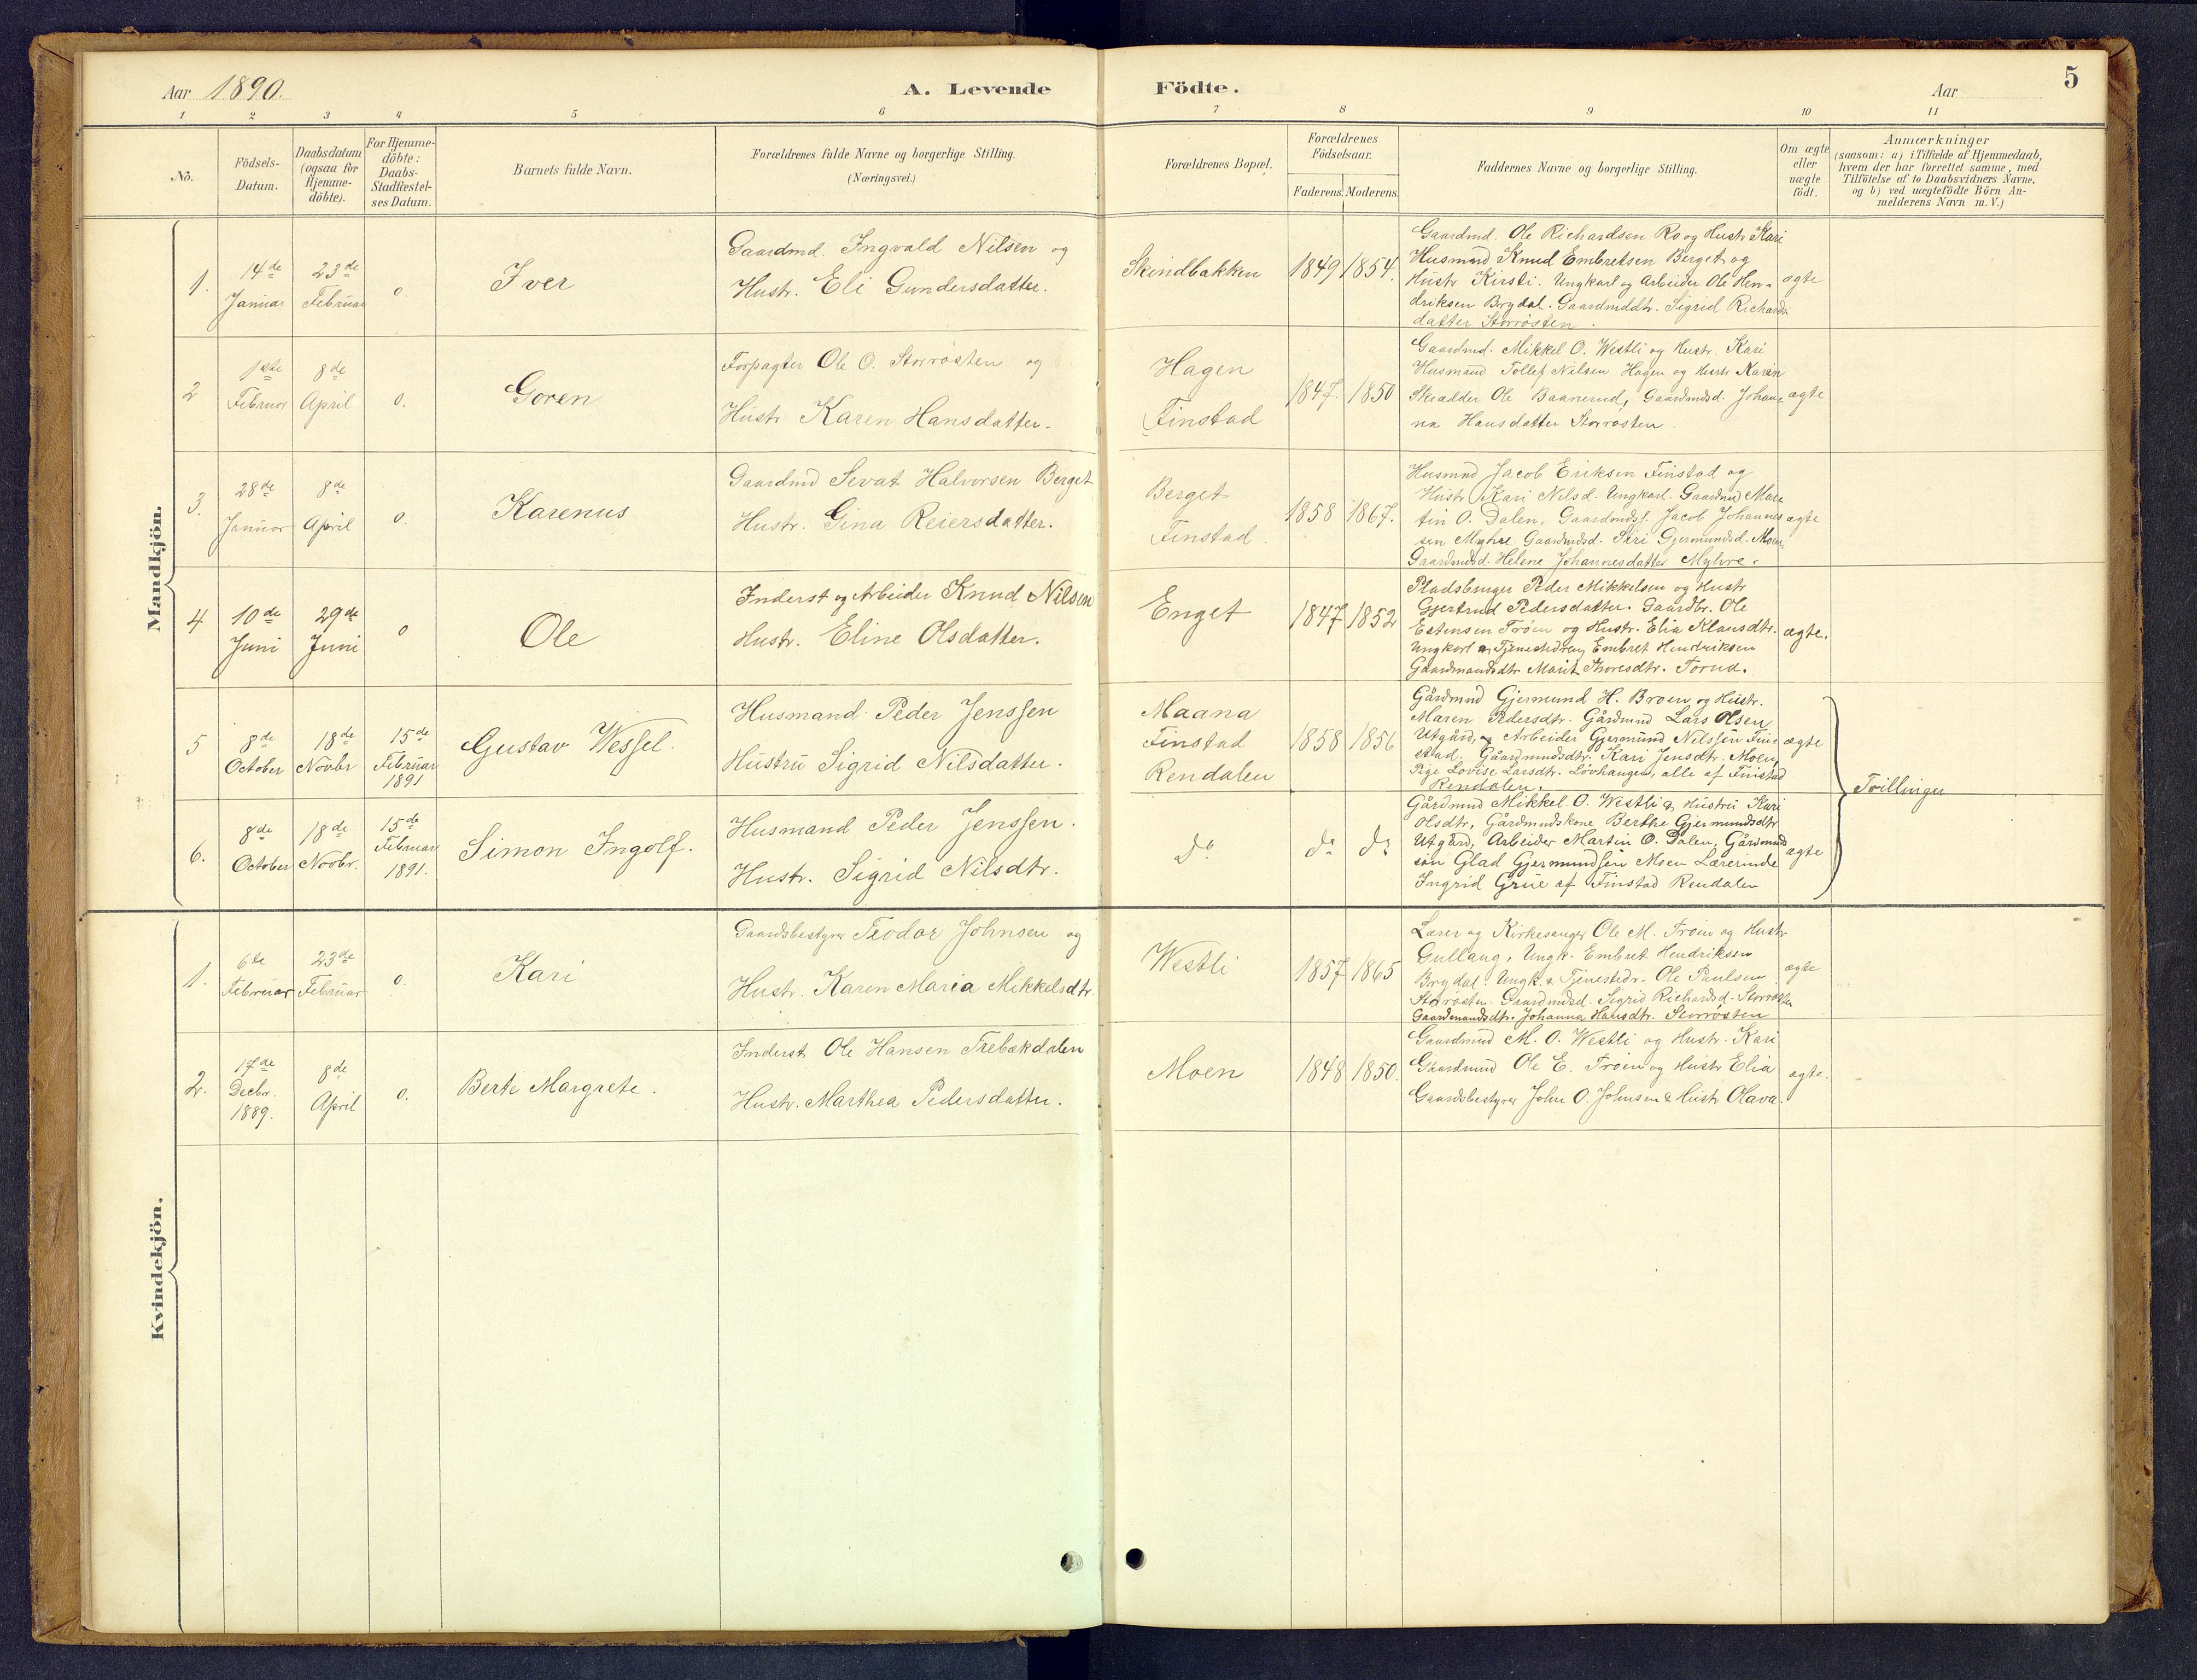 Aar 1890.
A. Levende
Födte.
Aar
5
1 2 3 4 5 6 7 8 9 10 11
No.
Födsels-
Datum.
Daabsdatum
(ogsaa for
Hjemme-
döbte).
For Hjemme-
döbte:
Daabs-
Stadfæstel-
ses Datum.
Barnets fulde Navn.
Forældrenes fulde Navne og borgerlige Stilling.
(Næringsvei.)
Forældrenes Bopæl.
Forældrenes
Födselsaar.
Faderens. Moderens.
Faddernes Navne og borgerlige Stilling.
Om ægte
eller
uægte
födt.
Anmærkninger
(saasom: a) i Tilfælde af Hjemmedaab,
hvem der har forrettet samme, med
Tilföielse af to Daabsvidners Navne.
og b) ved uægtefödte Börn An-
melderens Navn m. V.)
Mandkjön.
1.
14de
Januar
23de
Februar
0.
Iver
Gaardmd. Ingvald Nilsen og
Hustr. Eli Gundersdatter.
Skindbakken
1849
1854.
Gaardmd. Ole Richardsen Ro og Hustr Kari
Husmand Knud Embretsen Berget og
Hustr Kirsti. Ungkarl og Arbeider Ole Hen-
driksen Brydal. Gaardmddtr. Sigrid Richards-
datter Storrösten.
ægte
2
1ste
Februar
8de
April
0.
Goren
Forpagter Ole O. Storrösten og
Hustr Karen Hansdatter.
Hagen
Finstad
1847.
1850
Gaardmd. Mikkel O. Westli og Hustr. Kari
Husmand Tollef Nilsen Hagen og Hustr Karen
Skrædder Ole Baanerud, Gaardmdsd. Johan-
na Hansdatter Storrösten
ægte
3.
28de
Januar
8de
April
0.
Karenus
Gaardmd Sevat Halvorsen Berget
Hustr. Gina Reiersdatter.
Berget
Finstad.
1858
1867.
Husmnd Jacob Eriksen Finstad og
Hustr Kari Nilsd. Ungkarl. Gaardmd Mar-
tin O. Dalen, Gaardmdss. Jacob Johannes
sen Myhre. Gaardmdsd. Siri Gjermundsd. Moen,
Gaardmdsd. Helene Johannesdatter Myhre.
ægte
4
10de
Juni
29de
Juni
0
Ole
Inderst og Arbeider Knud Nilsen
Hustr. Eline Olsdatter.
Enget
1847
1852
Pladsbruger Peder Mikkelsen og Hustr
Gjertrud Pedersdatter. Gaardbr. Ole
Estensen Tröen og Hustr. Elia Klausdtr.
Ungkarl og Tjenestedreng Embret Hendriksen
Gaardmandsdtr Marit Thoresdtr. Torud.
ægte.
5
8de
October
18de
Novbr
15de
Februar
1891
Gustav Wessel.
Husmand Peder Jenssen
Hustru Sigrid Nilsdatter.
Maana
Finstad
Rendalen
1858
1856
Gårdmnd Gjermund H. Broen og Hustr.
Maren Pedersdtr. Gårdmnd Lars Olsen
Utgård, og Arbeider Gjermund Nilssen Fin-
stad. Gåardmndsdtr. Kari Jensdtr. Moen,
Pige Lovise Larsdtr. Lövhaugen, alle af Finstad
Rendalen.
ægte
Tvillinger
6.
8de
October
18de
Novbr.
15de
Februar
1891.
Simon Ingolf.
Husmand Peder Jenssen.
Hustr. Sigrid Nilsdtr.
do
do
do
Gårdmnd Mikkel O. Westli & Hustru Kari
Olsdtr, Gårdmndskone Berthe Gjermundsdtr
Utgård, Arbeider Martin O. Dalen, Gårdmnd
sön Glad Gjermundsen Moen Lærerinde
Ingrid Grue af Finstad Rendalen
ægte
Kvindekjön.
1.
6te
Februar
23de
Februar
0.
Kari
Gaardsbestyrer Teodor Johnsen og
Hustr. Karen Maria Mikkelsdtr.
Westli
1857
1865
Lærer og Kirkesanger Ole M. Tröen og Hustr
Gullaug, Ungk. Embret Hendriksen
Brydal. Ungk. & Tjenestedr. Ole Paulsen
Storrösten. Gaardmdsd. Sigrid Richardsd. Storrösten
Gaardmandsdtr. Johanna Hansdtr. Storrösten
ægte
2.
17de
Decbr.
1889.
8de
April
0.
Berte Margrete.
Inderst Ole Hansen Trebækdalen
Hustr. Marthea Pedersdatter.
Moen
1848
1850.
Gaardmnd M. O. Westli og Hustr. Kari
Gaardmnd Ole E. Tröen og Hustr Elia
Gaardsbestyrer John O. Johnsen & Hustr Olava.
ægte.